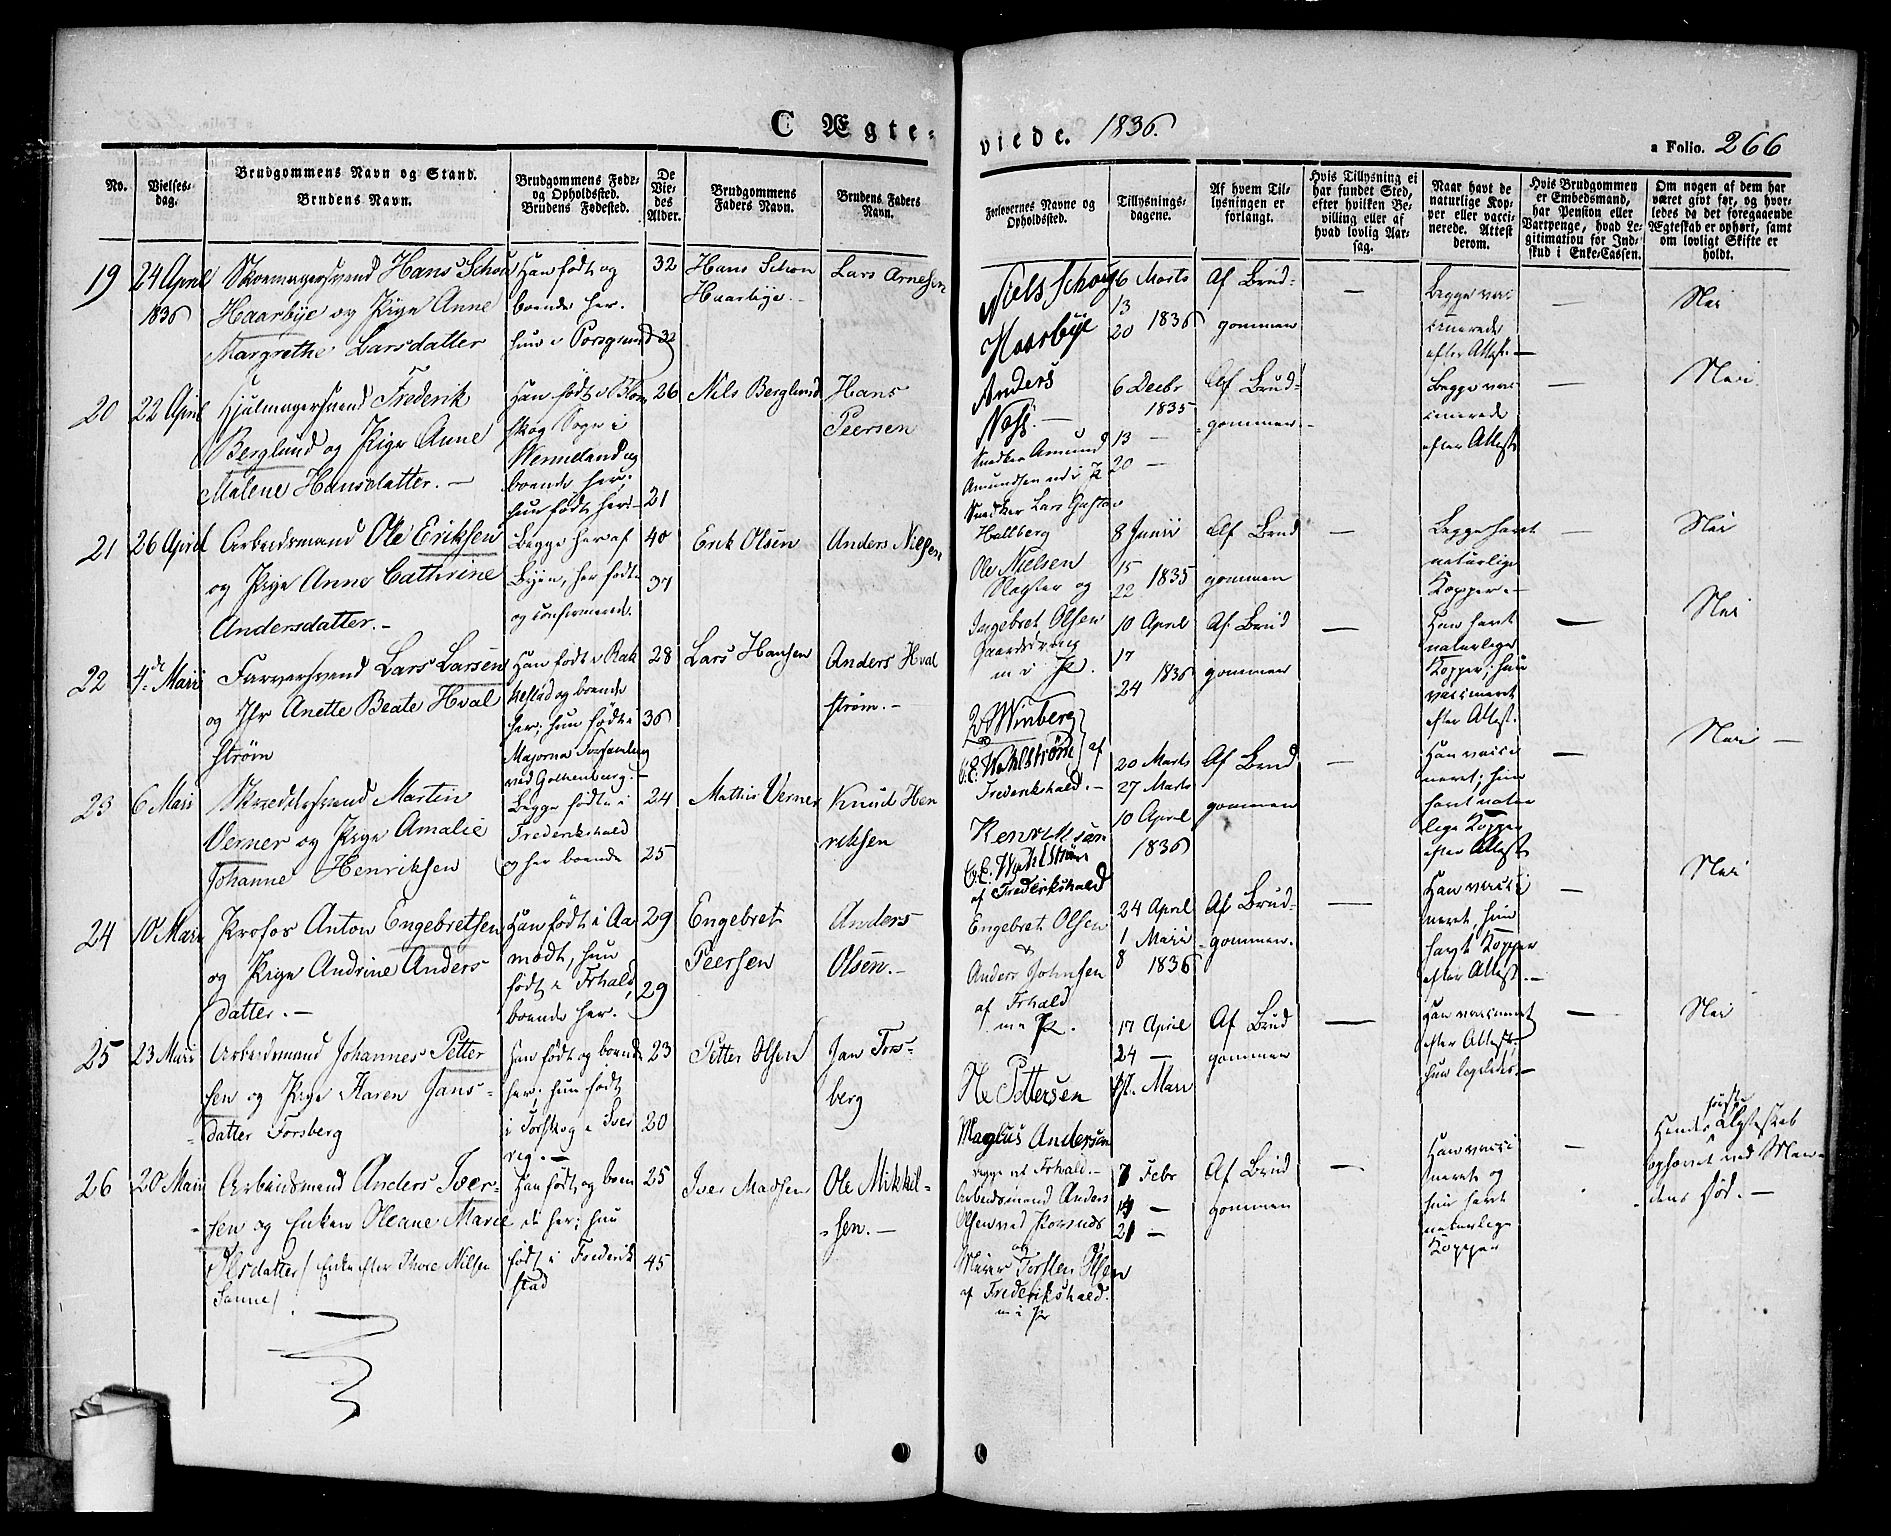 C Ægte-
viede. 1836.
a Folio. 266
No.
Vielses-
dag.
Brudgommens Navn og Stand.
Brudens Navn.
Brudgommens Føde-
og Opholdssted.
Brudens Fødested.
De
Vie-
des
Alder.
Brudgommens
Faders Navn.
Brudens Faders
Navn.
Forlovernes Navne og
Opholdssted.
Tillysnings-
dagene.
Af hvem Til-
lysningen er
forlangt.
Hvis Tillysning ei
har fundet Sted,
efter hvilken Be-
villing eller af
hvad lovlig Aar-
sag.
Naar havt de
naturlige Kop-
per eller vacci-
nerede. Attest
derom.
Hvis Brudgommen
er Embedsmand,
har Pension eller
Vartpenge, hvad Le-
gitimation for Ind-
skud i Enke-Cassen.
Om nogen af dem har
været givt før, og hvor-
ledes da det foregaaende
Ægteskab er ophørt, samt
om lovligt Skifte er
holdt.
19
24 April
1836
Skomagersvend Hans Schou
Haarbye og Pige Anne
Margrethe Larsdatter
Han født og
boende her.
hun i Porsgrund
32
32
Hans Schou
Haarbye.
Lars Arnesen
Niels Schou
Haarbye
6 Marts
13
20 1836
Af Brud-
gommen
—
Begge vac
cinerede
efter Attest. —
—
Nei
20
22 April
Hjulmagersvend Frederik
Berglund og Pige Anne
Malene Hansdatter. —
Han født i Blom
skog Sogn i
Wermeland og
boende her.
hun født her.
26
21
Nils Berglund
Hans
Peersen
Anders
Næss. —
Snedker Amund
Amundsen
Snedker Lars Gustav
Hallberg
6 Decbr
1835
13 —
20 —
Af Brud-
gommen
Begge vac
cinerede
efter Attest
—
Nei.
21
26 April
Arbeidsmand Ole Eriksen
og Pige Anne Cathrine
Andersdatter. —
Begge her af
Byen, her fødte
og confirmerede.
40
37
Erik Olsen
Anders Nilsen
Ole Nielsen
Slagter og
Ingebret Olsen
8 Junii
15
22 1835
Af Brud
gommen
—
Begge havt
naturlige
Kopper. —
—
Nei
22
4de Maii
Farversvend Lars Larsen
og Jfr Anette Beate Hval
strøm
Han født i Rak
kestad og boende
her; hun født i
Majorna Forsamling
ved Gothenburg. —
28
36
Lars Hansen
Anders Hval
strøm. —
Winberg
C. E. Wahlstrøm } af
Frederikshald. —
10 April
17
24 1836
Af Brud
gommen
—
Han havt
naturlige
Kopper; hun
vaccineret
efter Attest.
—
Nei
23
6 Mai
Martin
Verner og Pige Amalie
Johanne Henriksen
Begge fødte i
Frederikshald
og her boende
24
25
Mathis Verner
Knud Hen
riksen
C. E. Wahlstrøm
af Frederikshald
20 Marts
27 Marts
10 April
1836
Af Brud
gommen
—
Han vacci
neret; hun
havt natur
lige Kopper
efter Attest
—
Nei —
24
10 Mai
Profos Anton Engebretsen
og Pige Andrine Anders
datter. —
Han født i Aa
modt, hun
født i Frhald,
boende her.
29
29
Engebret
Peersen
Anders
Olsen. —
Engebret Olsen
&
Anders Johnsen
af Frhald
24 April
1 Maii
8 1836
Af Brud-
gommen.
—
Han vacci
neret, hun
havt Kopper
efter Attest. —
—
Nei
25
23 Mai
Arbeidsmand Johannes Petter
sen og Pige Karen Jans-
datter Forsberg
Han født og boende
her; hun født
i Torskog i Sver
rig. —
23
20
Petter Olsen
Jan Fors-
berg
Pettersen
Magnus Andersen
begge af Frhald. —
17 April
24 —
1. Mai
Af Brud
gommen
—
Han vaccineret
efter Attest,
hun ligeledes. —
—
Nei
26
20 Mai
Arbeidsmand Anders Iver-
sen og Enken Oleane Marie
Olsdatter / Enke efter Thore Nilsen
Sanne /.
Han født og boen
de her; hun
født i Frederik
stad
25
45
Iver Madsen
Ole Mikkel-
sen. —
Arbeidsmand Anders
Olsen
og
Murer Torsten Olsen
af Frederikshald.
7 Febr
14 —
21 —
Af Brud
gommen
—
Han vacci
neret og
hun havt
naturlige
Kopper
—
Hendes første Ægteskab
ophævet ved Man-
dens Død. —